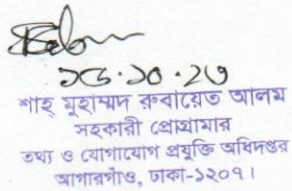 ১৫.১০.২৩
শাহ্ মুহাম্মদ রুবায়েত আলম
সহকারী প্রোগ্রামার
তথ্য ও যোগাযোগ প্রযুক্তি অধিদপ্তর
আগারগাঁও, ঢাকা-১২০৭।